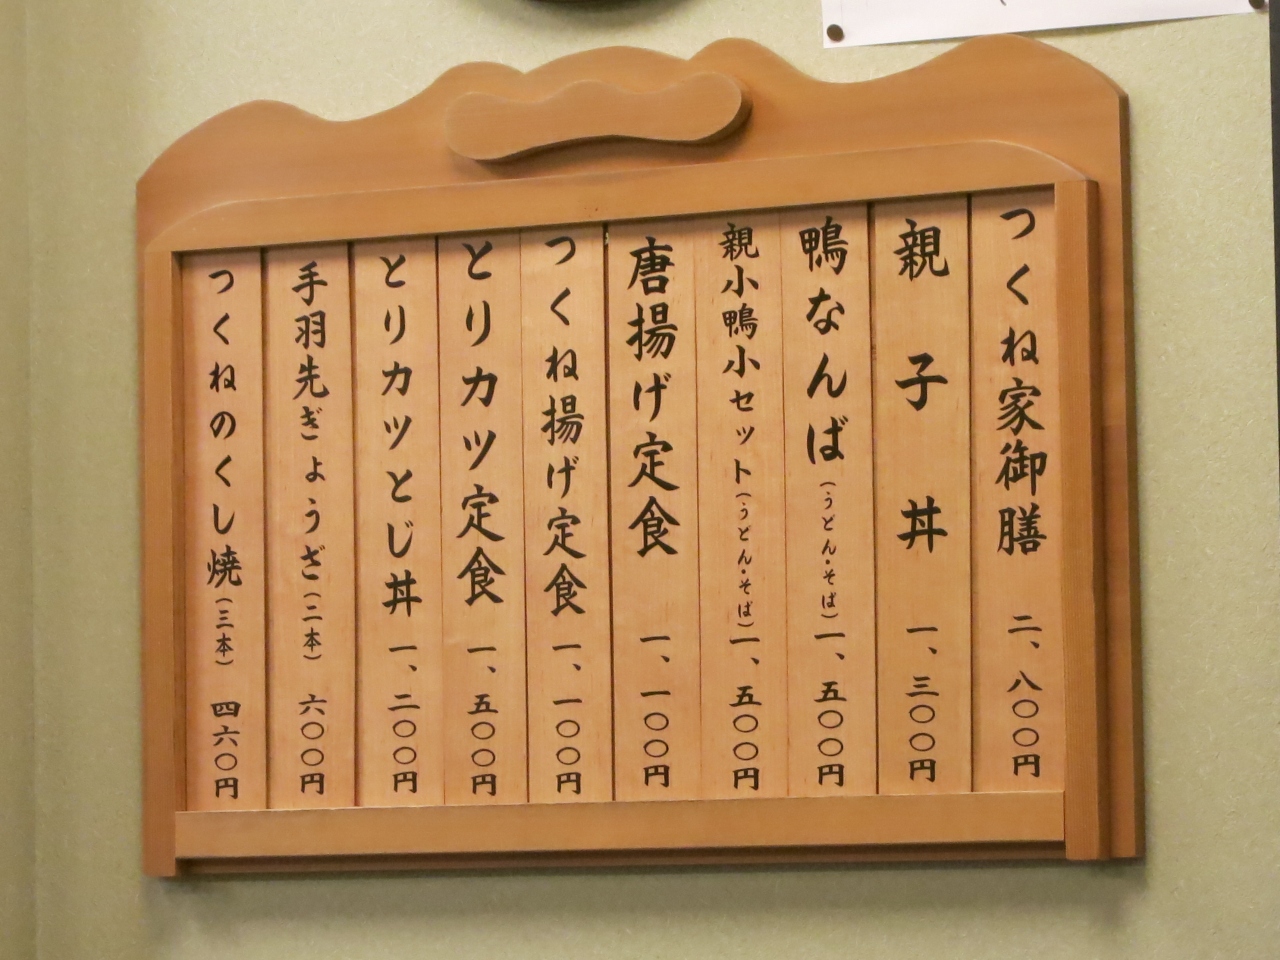 つくね家御膳 二、八〇〇円
親子丼 一、三〇〇円
鴨なんば(うどん・そば)一、五〇〇円
親小鴨小セット(うどん・そば)一、五〇〇円
唐揚げ定食 一、一〇〇円
つくね揚げ定食 一、一〇〇円
とりカツ定食 一、五〇〇円
とりカツとじ丼 一、二〇〇円
手羽先ぎょうざ(二本) 六〇〇円
つくねのくし焼(三本) 四六〇円